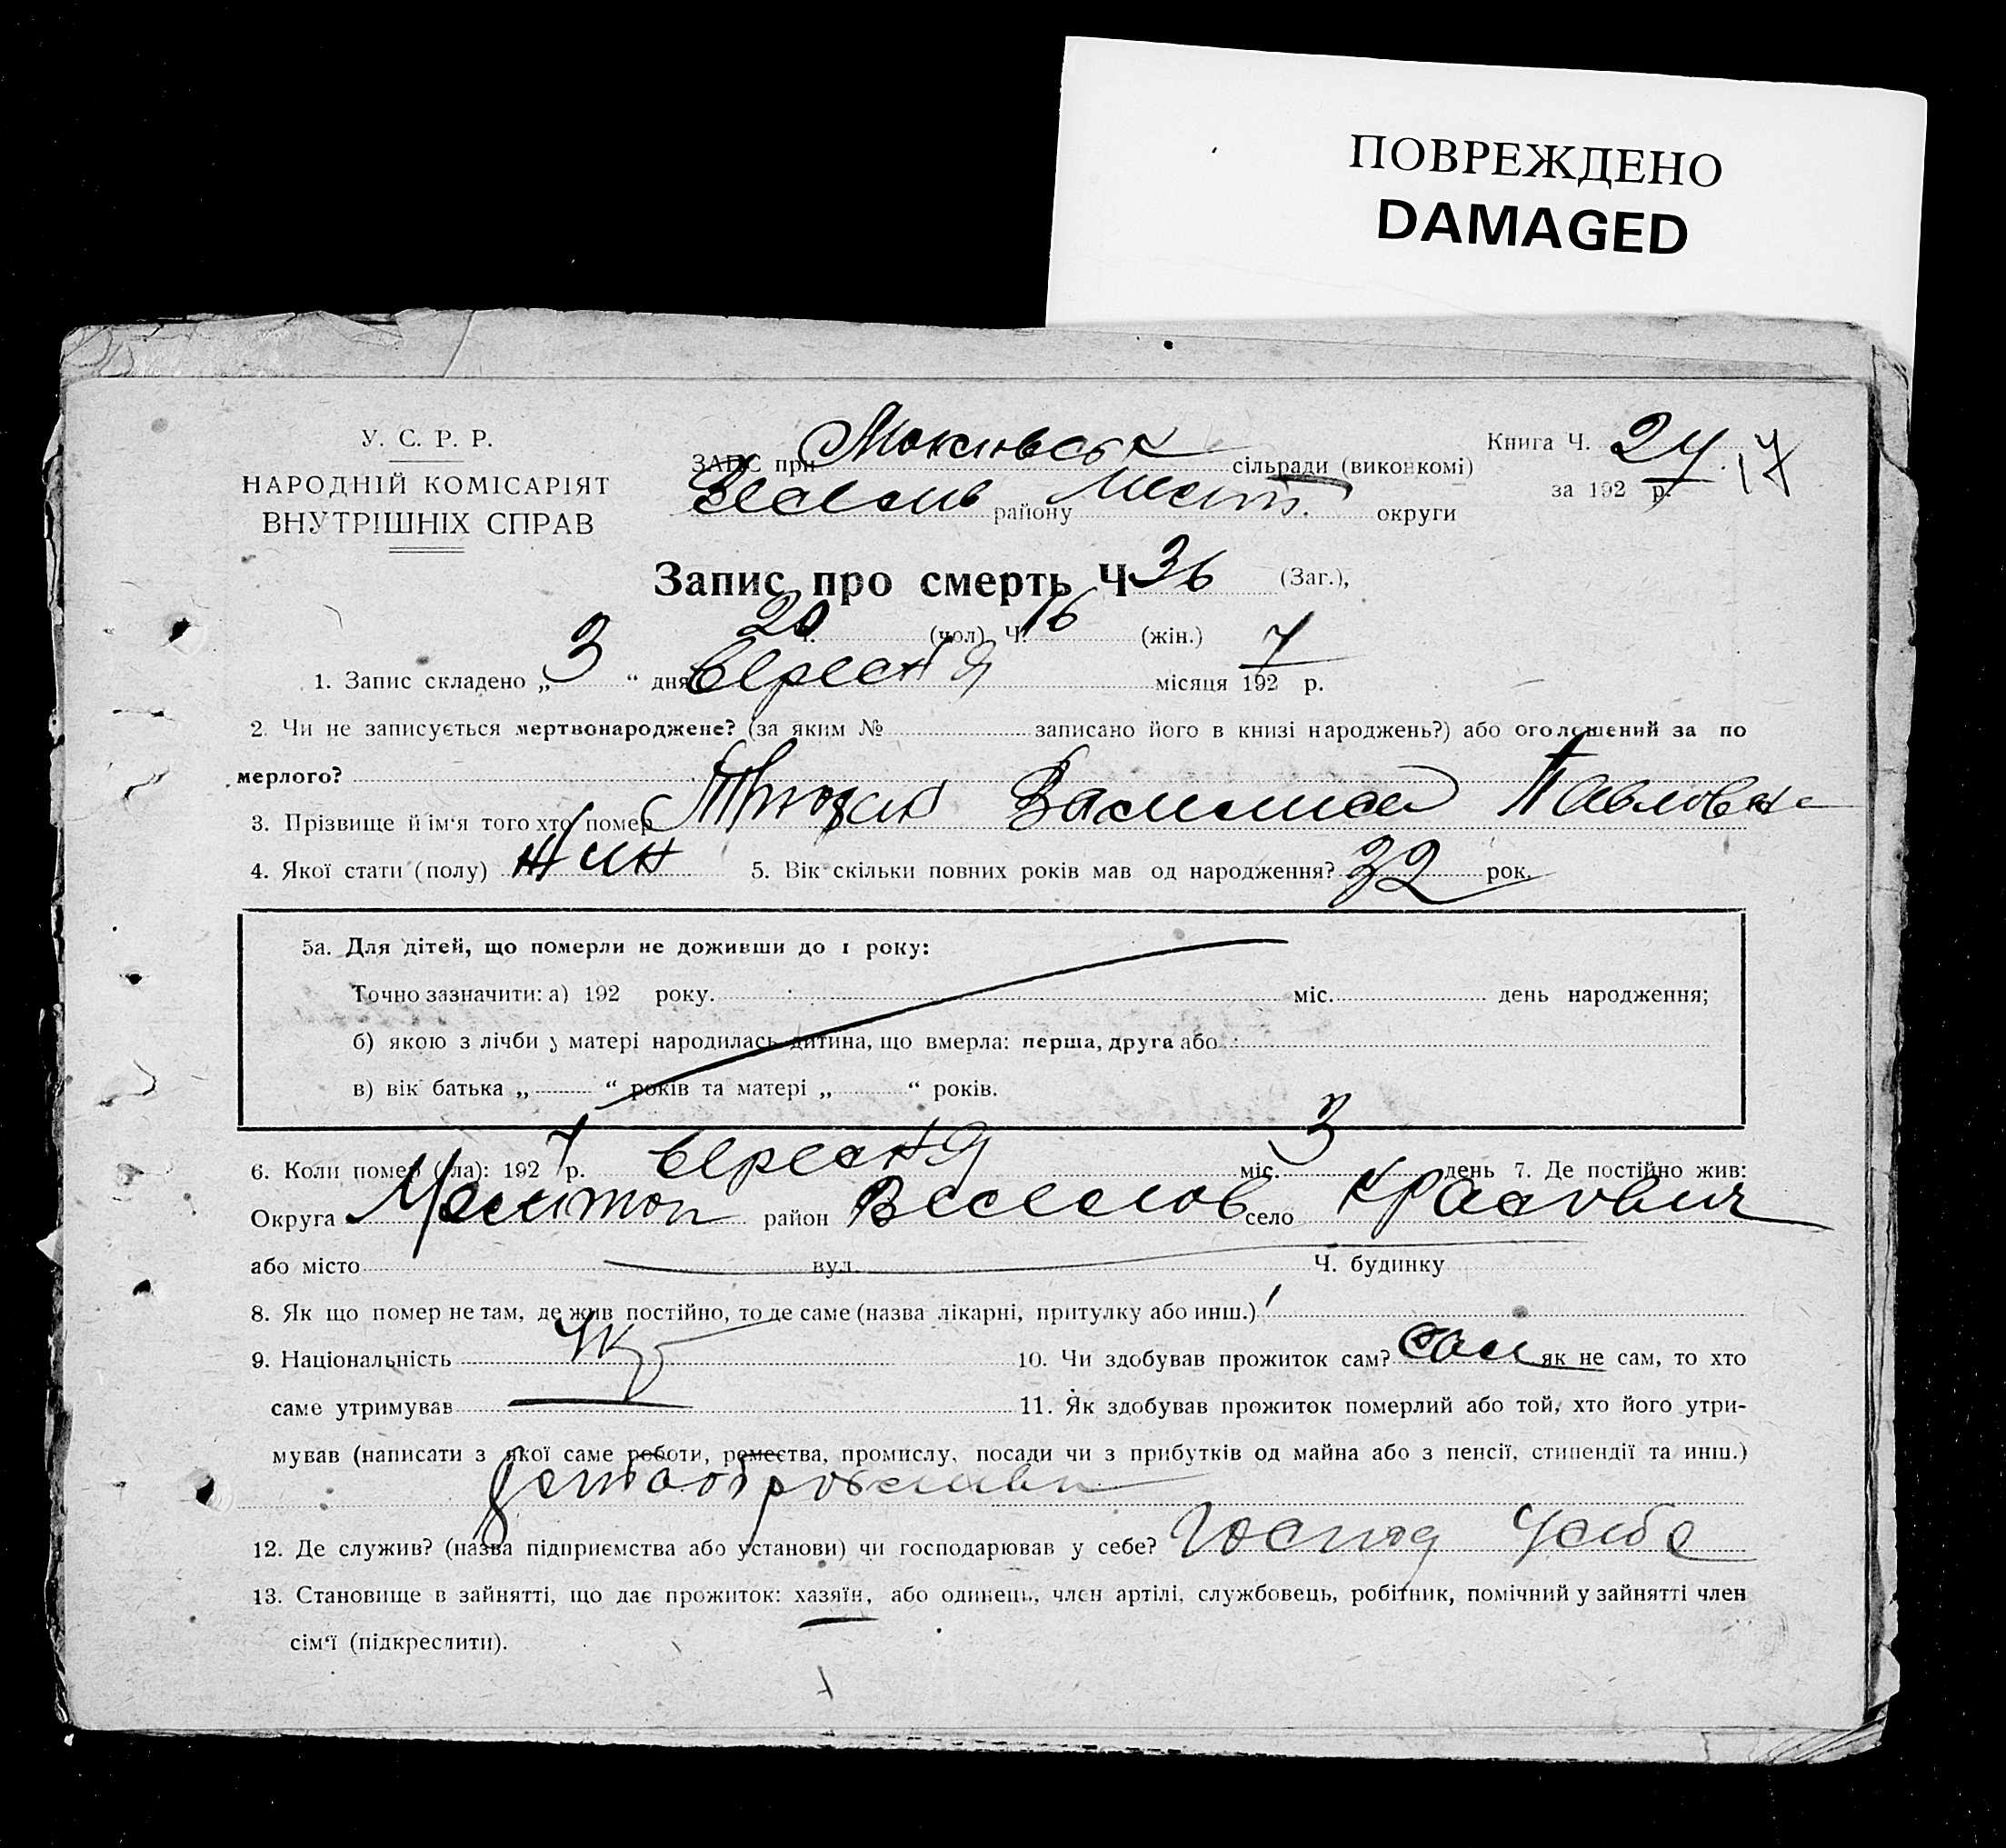 ПОВРЕЖДЕНО
DAMAGED
У. С. Р. Р.
НАРОДНІЙ КОМІСАРІЯТ
ВНУТРІШНІХ СПРАВ
ЗАПИС при сільради (виконкомі)
району Меліт. округи
Книга Ч. 24
за 192 7 р.
Запис про смерть Ч 36 (Заг.),
Ч. 20 (чол) Ч. 16 (жін.)
1. Запис складено „ 3 “ дня Вересня місяця 192 7 р.
2. Чи не записується мертвонароджене? (за яким № записано його в книзі народжень?) або оголошений за по
мерлого?
3. Прізвище й ім'я того хто помер Василиса Павловна
4. Якої стати (полу) жин 5. Вік скільки повних років мав од народження? 32 рок.
5а. Для дітей, що померли не доживши до 1 року:
Точно зазначити: а) 192 року. міс. день народження;
б) якою з лічби у матері народилась дитина, що вмерла: перша, друга або
в) вік батька „ “ років та матері „ “ років.
6. Коли помер (ла): 192 7 р. Вересня міс. 3 день 7. Де постійно жив:
Округа Мелитоп район Веселов село
або місто вул. Ч. будинку
8. Як що помер не там, де жив постійно, то де саме (назва лікарні, притулку або инш.)
9. Національність Укр 10. Чи здобував прожиток сам? Сам як не сам, то хто
саме утримував 11. Як здобував прожиток померлий або той, хто його утри-
мував (написати з якої саме роботи, ремества, промислу, посади чи з прибутків од майна або з пенсії, стипендії та инш.)
12. Де служив? (назва підприємства або установи) чи господарював у себе? Господ у себе
13. Становище в зайнятті, що дає прожиток: хазяїн, або одинець, член артілі, службовець, робітник, помічний у зайнятті член
сім'ї (підкреслити).